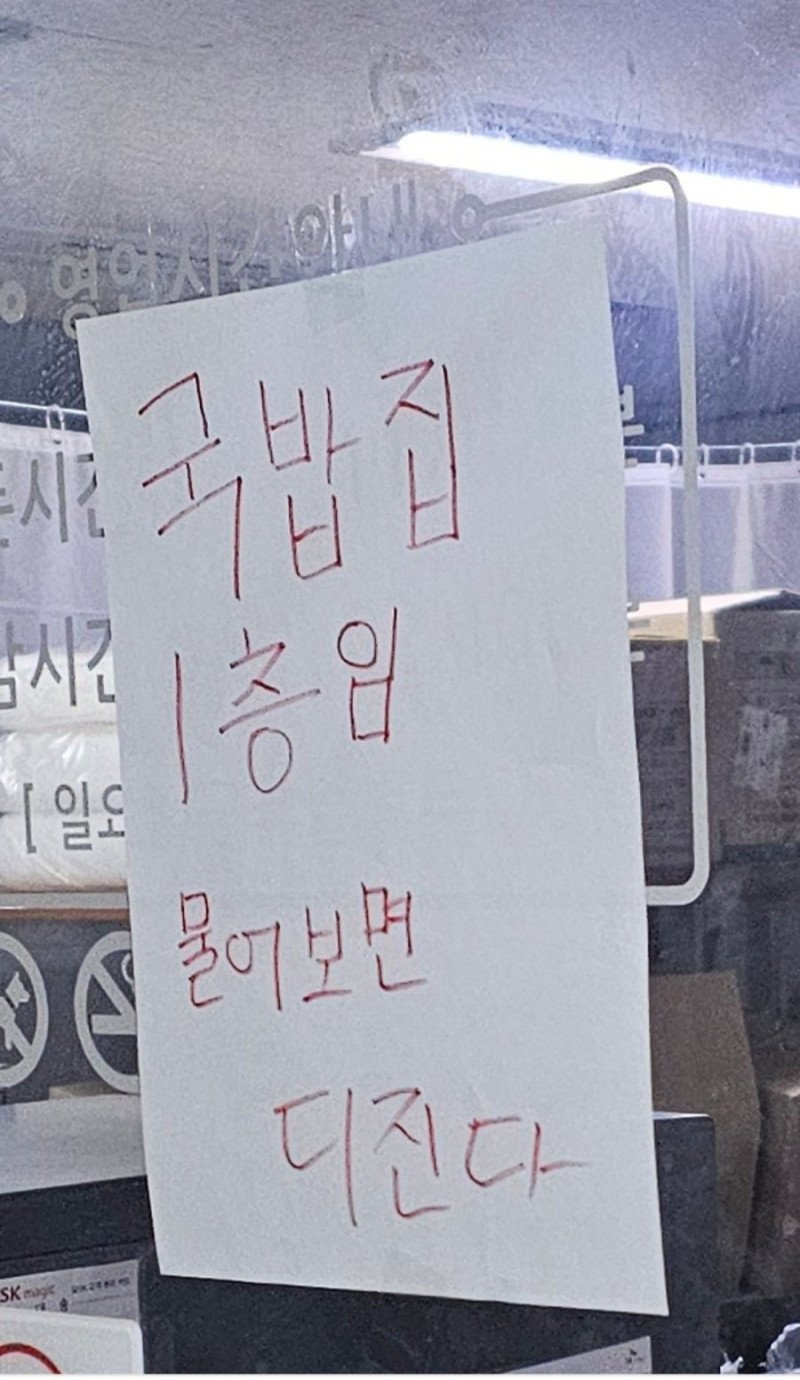 영업시간 안내
시간
시간
[ 일요
국밥집
1층임
물어보면
디진다
SK magic